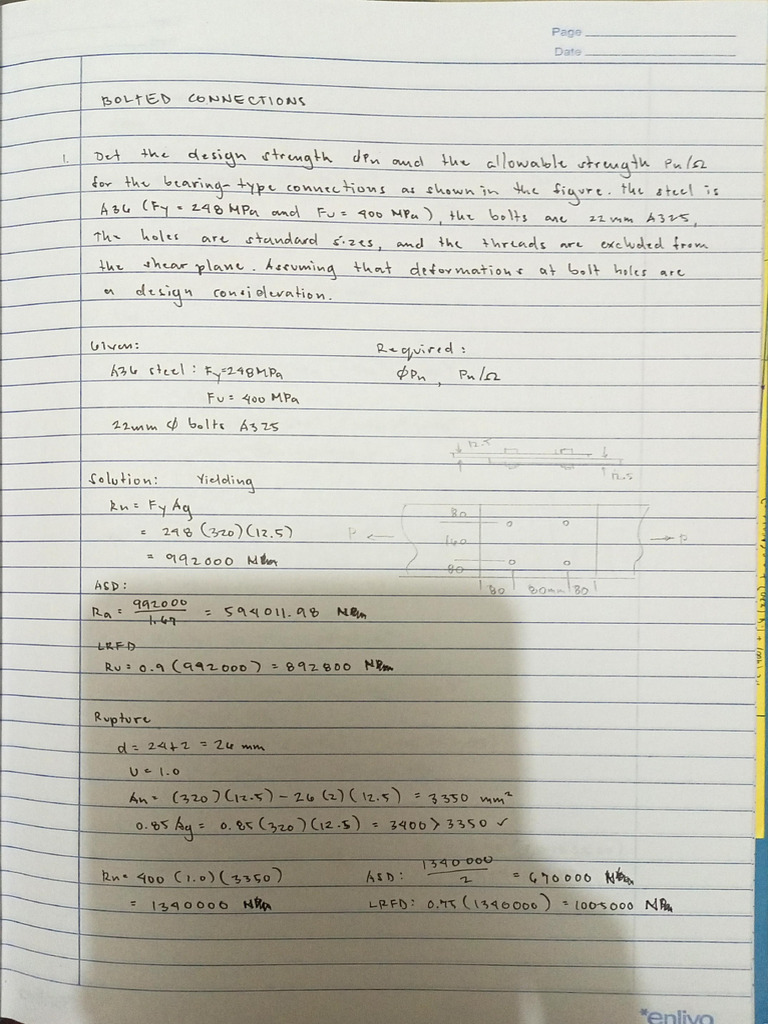 Page
Date
BOLTED CONNECTIONS
1. Det the design strength ϕPn and the allowable strength Pn/Ω
for the bearing-type connections as shown in the figure. The steel is
A36 (Fy = 248 MPa and Fu = 400 MPa), the bolts are 22 mm A325,
The holes are standard sizes, and the threads are excluded from
the shear plane. Assuming that deformations at bolt holes are
a design consideration.
Given: Required:
A36 steel: Fy=248MPa ϕPn, Pn/Ω
Fu = 400 MPa
22mm ϕ bolts A325
12.5
12.5
Solution: Yielding
Rn = Fy Ag
= 248 (320)(12.5)
= 992000 N
80
P ← 140 → P
80
80 80mm 80
ASD:
Ra = 992000/1.67 = 594011.98 N
LRFD
Ru = 0.9 (992000) = 892800 N
Rupture
d = 24+2 = 26 mm
U = 1.0
An = (320)(12.5) - 26(2)(12.5) = 3350 mm²
0.85 Ag = 0.85(320)(12.5) = 3400 > 3350 ✓
Rn = 400 (1.0)(3350) ASD: 1340000/2 = 670000 N
= 1340000 N LRFD: 0.75(1340000) = 1005000 N
*enlivo